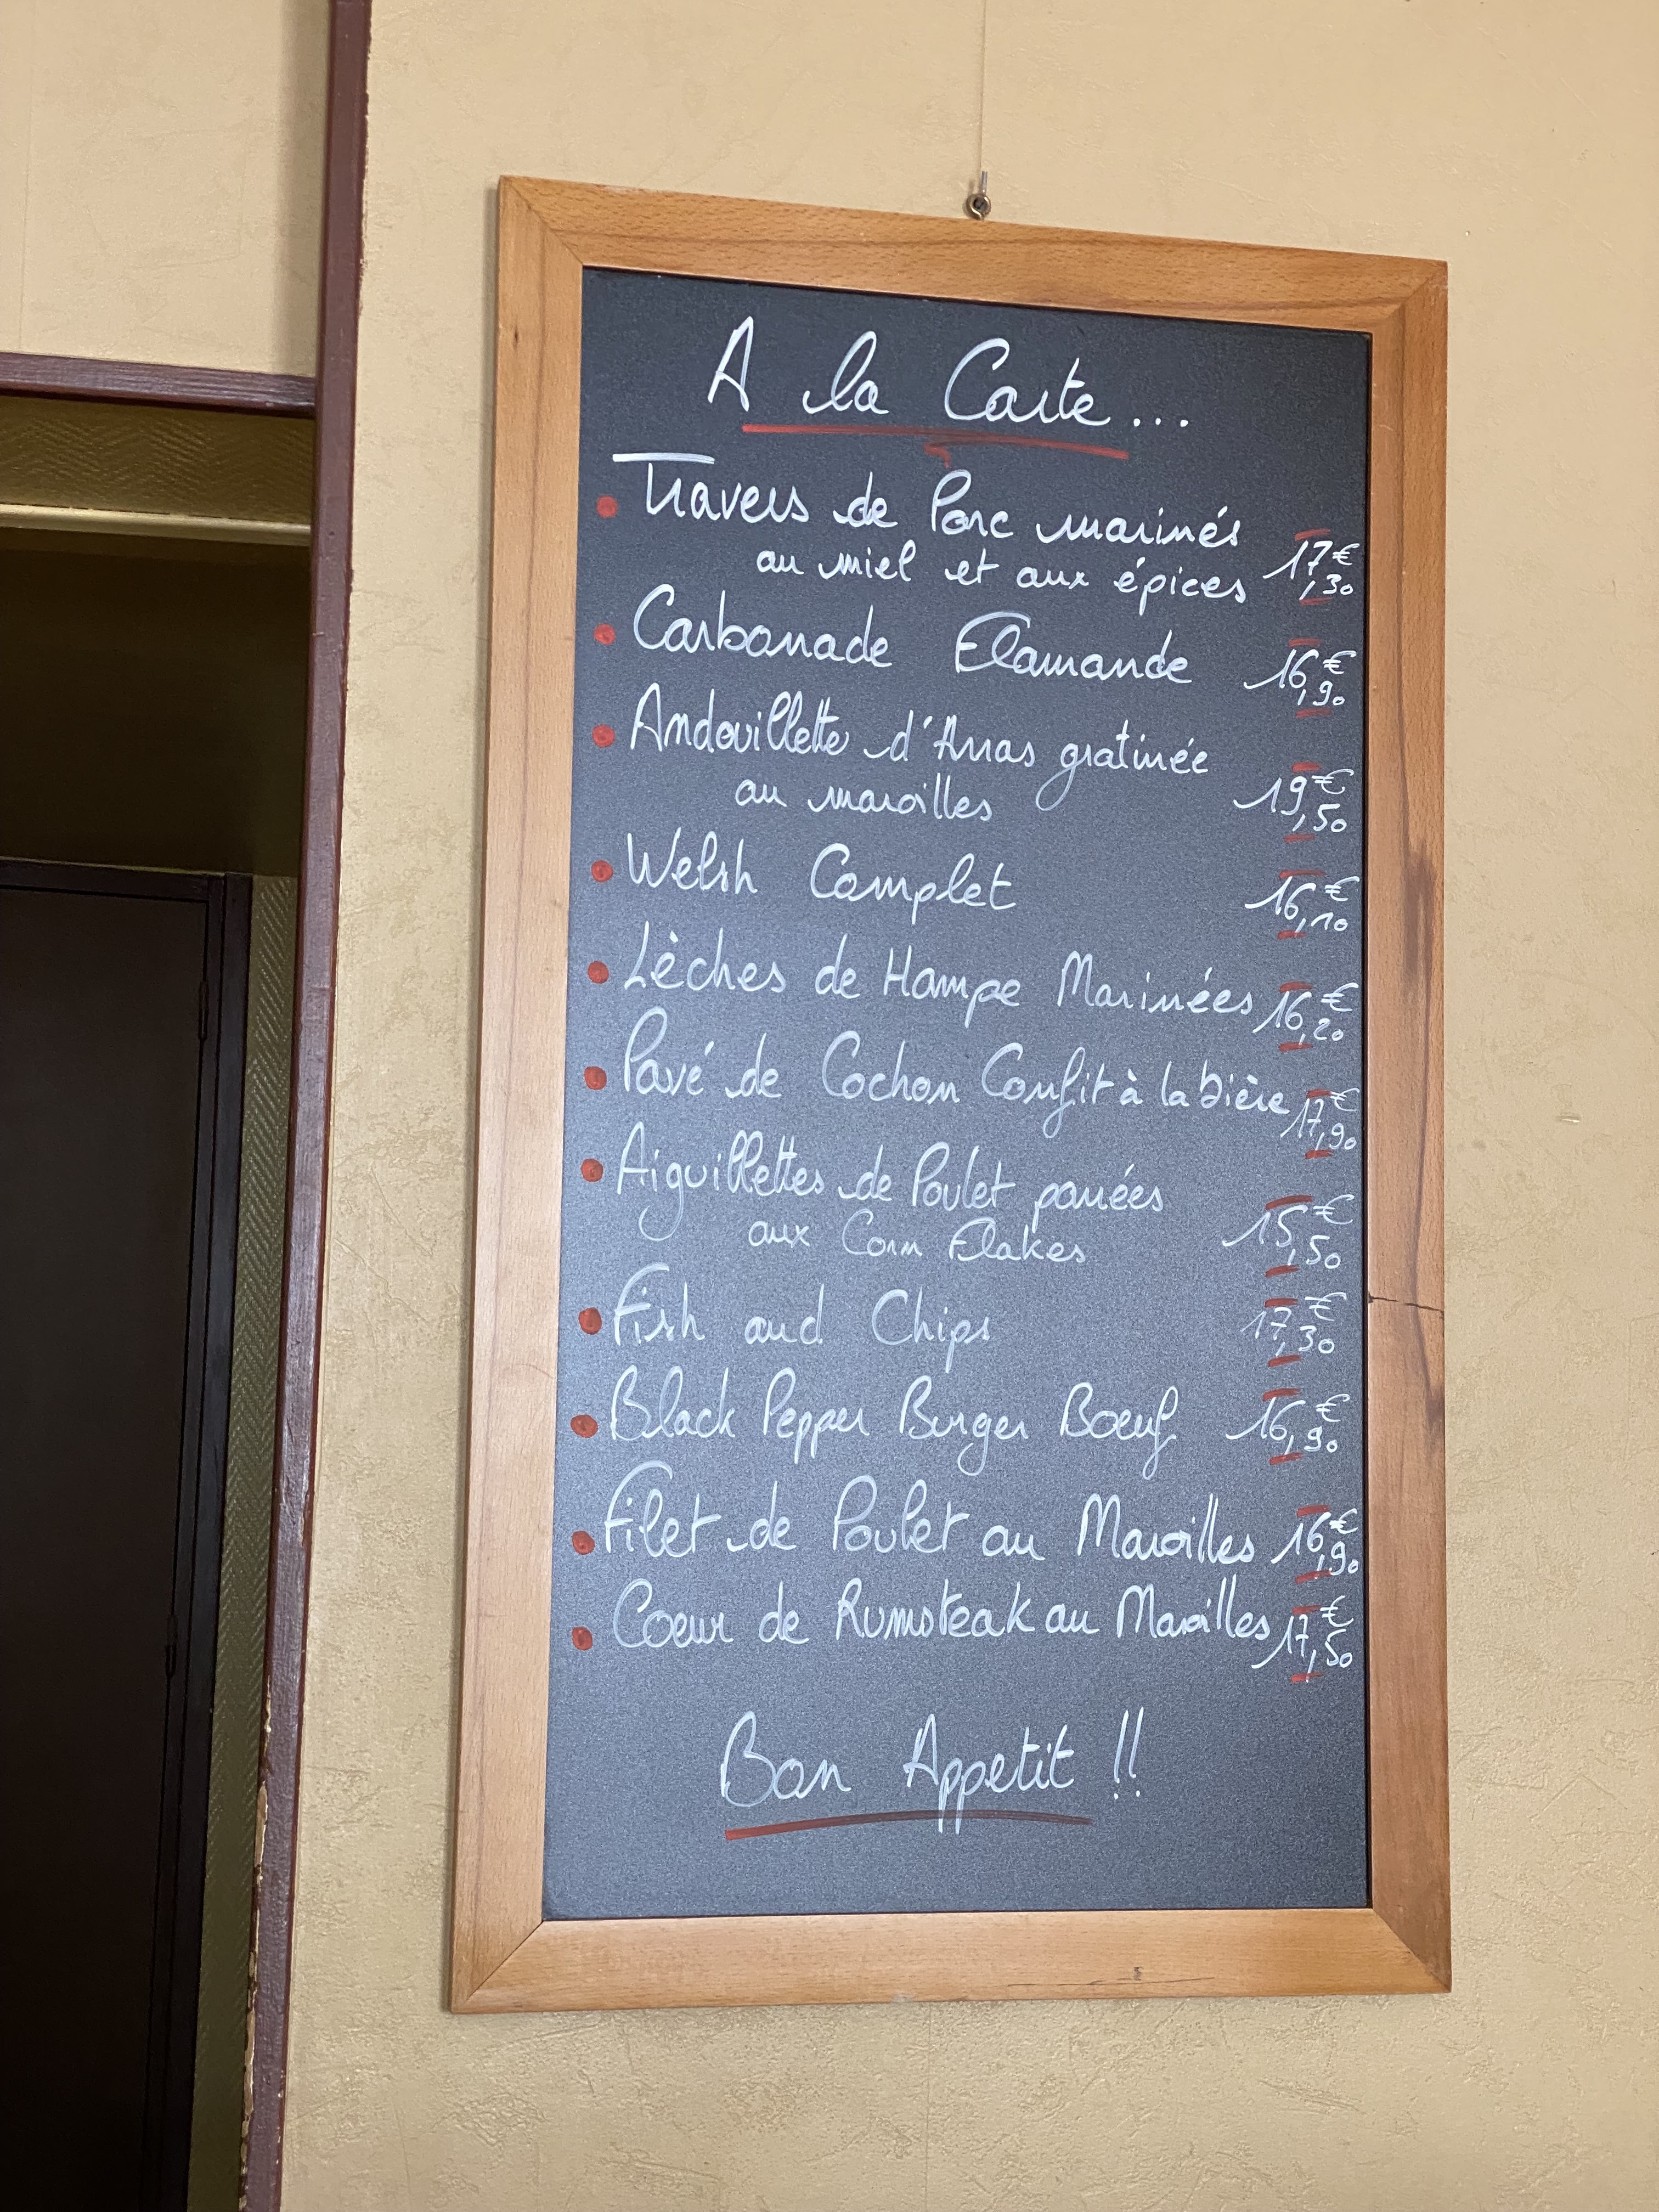 A la Carte...
Travers de Porc marinés
au miel et aux épices 17€,30
Carbonade Flamande 16€,90
Andouillette d'Arras gratinée
au maroilles 19€,50
Welsh Complet 16€,10
Lèches de Hampe Marinées 16€,20
Pavé de Cochon Confit à la bière 17€,90
Aiguillettes de Poulet panées
aux Corn Flakes 15€,50
Fish and Chips 17€,30
Black Pepper Burger Boeuf 16€,90
Filet de Poulet au Maroilles 16€,90
Coeur de Rumsteak au Maroilles 17€,50
Bon Appetit !!